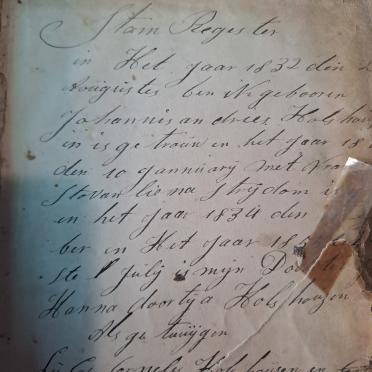 Stam Regester
in Het Jaar 1832 den
Auugustes ben ik gebooren
Johannis andries Hols
in is ge trouw en het jaar 18
den 10 Jannuarij met Vro
Strijdom is
en het jaar 1834 den
ber en Het Jaar 18
ste Julij is mijn Doc
Hanna doortja Hols housen
Als ge tuiijgen
Cornelis Hols housen en